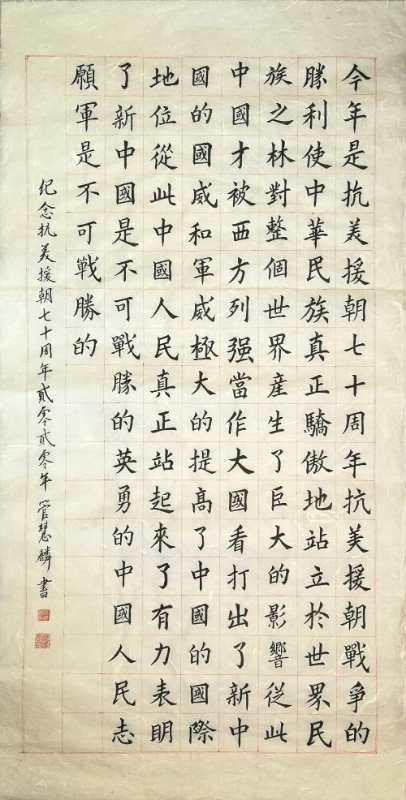 今年是抗美援朝七十周年抗美援朝戰爭的
勝利使中華民族真正驕傲地站立於世界民
族之林對整個世界産生了巨大的影響從此
中國才被西方列强當作大國看打出了新中
國的國威和軍威極大的提高了中國的國際
地位從此中國人民真正站起來了有力表明
了新中國是不可戰勝的英勇的中國人民志
願軍是不可戰勝的
纪念抗美援朝七十周年貳零貳零年管慧麟書